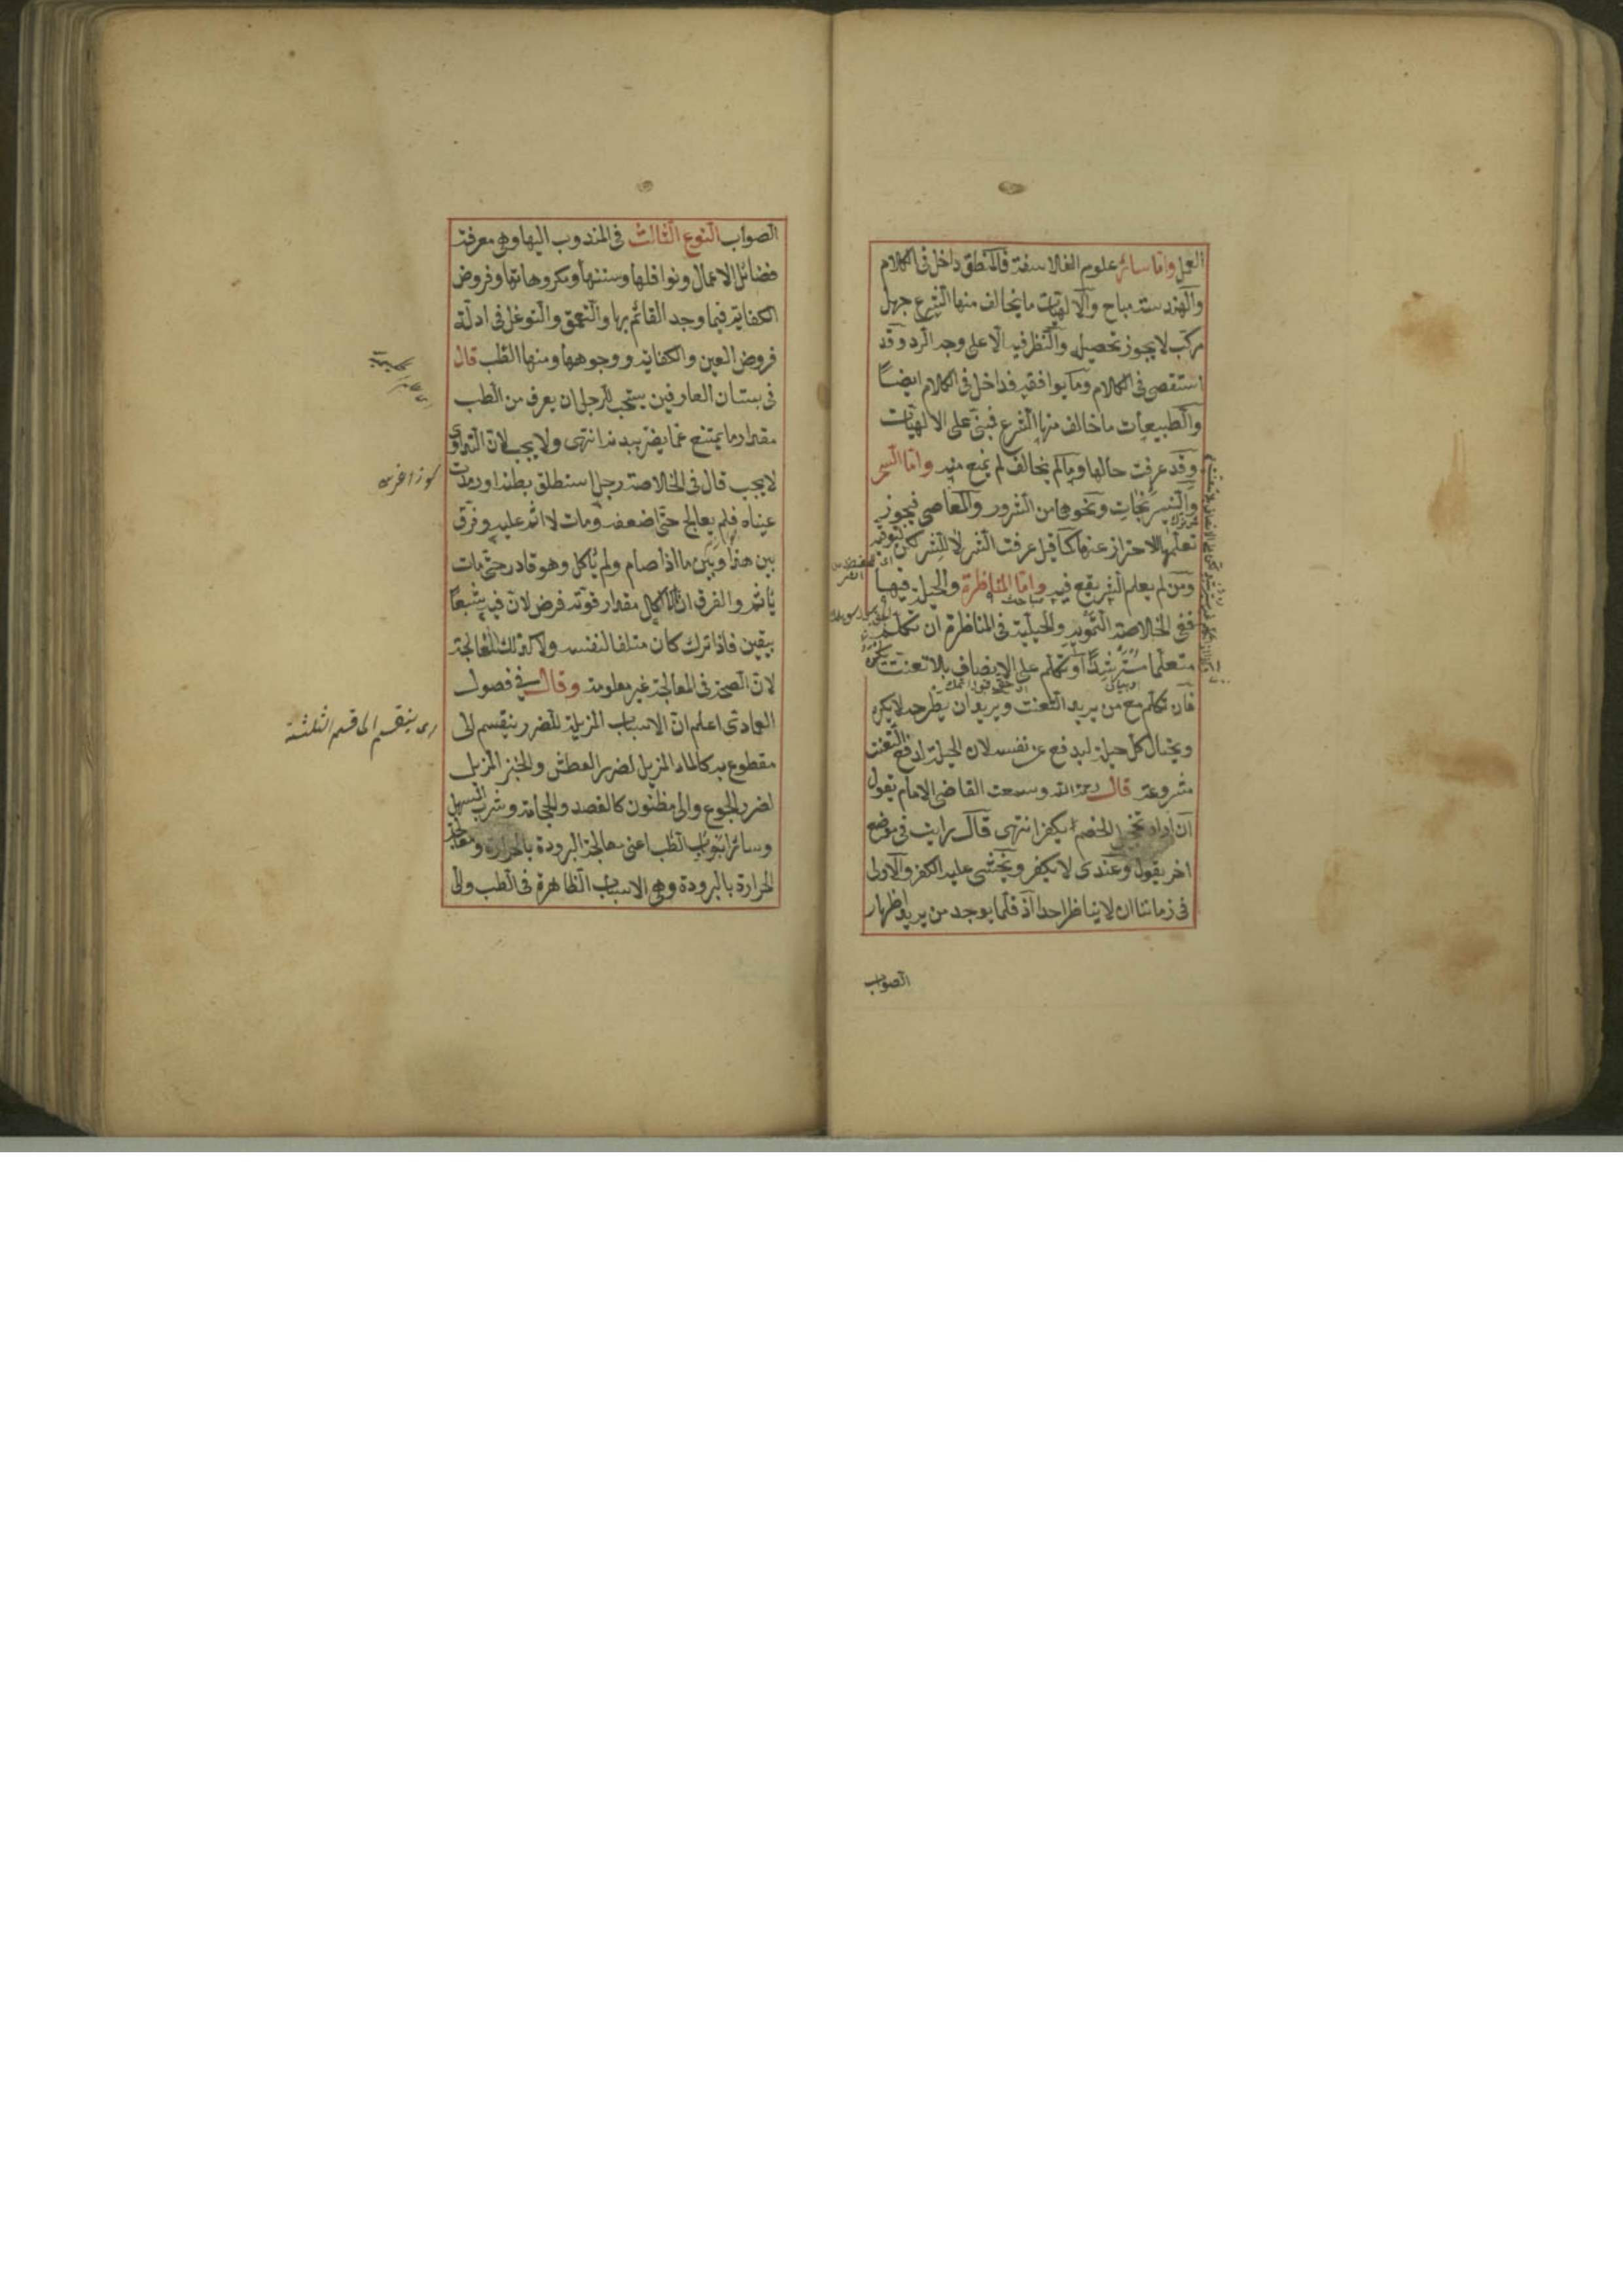 العمل واما سائر علوم الفلاسفة فالمنطق داخل فى الكلام
والهندسة مباح والالهيات ما يخالف منها الشرع جهل
مركب لا يجوز تحصيله والنظر فيه الا على وجه الرد وقد
استقصى فى الكلام وما يوافقه فداخل فى الكلام ايضاً
والطبيعيات ما خالف منها الشرع فبنى على الالهيات
وقد عرفت حالها وما لم يخالف لم يمنع منه واما السحر
والنيرنجات ونحوها من الشرور والمعاصى فيجوز
تعلمها للاحتراز عنها كما قيل عرفت الشر لا للشر لكن لتوقيه
ومن لم يعلم الشر يقع فيه واما المناظرة والحيلة فيها
ففى الخلاصة التمويه والحيلة فى المناظرة ان تكلم
متعلما مسترشدا او تكلم على الانصاف بلا تعنت
فان تكلم مع من يريد التعنت ويريد ان يطرحه لا يكره
ويحتال كل حيلة ليدفع عن نفسه لان الحيلة لدفع التعنت
مشروعة قال رحمه الله وسمعت القاضى الامام يقول
ان اراد تخجيل الخصم يكفر انتهى قال رايت فى موضع
اخر يقول وعندى لا يكفر ويخشى عليه الكفر والاولى
فى زماننا ان لا يناظر احدا اذ قلما يوجد من يريد اظهار
الصواب
الصواب النوع الثالث فى المندوب اليها وهى معرفة
فضائل الاعمال ونوافلها وسننها ومكروهاتها وفروض
الكفاية فيما وجد القائم بها والتعمق والتوغل فى ادلة
فروض العين والكفاية ووجوهها ومنها الطب قال
فى بستان العارفين يستحب للرجل ان يعرف من الطب
مقدار ما يمتنع عما يضر ببدنه انتهى ولا يجب لان التداوى
لا يجب قال فى الخلاصة رجل استطلق بطنه او رمدت
عيناه فلم يعالج حتى اضعفه ومات لا اثم عليه وفرق
بين هذا وبين ما اذا صام ولم يأكل وهو قادر حتى مات
يأثم والفرق ان الاكل مقدار قوته فرض لان فيه شبعاً
بيقين فاذا ترك كان متلفا لنفسه ولا كذلك المعالجة
لان الصحة فى المعالجة غير معلومة وقال فى فصول
العمادى اعلم ان الاسباب المزيلة للضرر ينقسم الى
مقطوع به كالماء المزيل لضرر العطش والخبز المزيل
لضرر الجوع والى مظنون كالفصد والحجامة وشرب المسهل
وسائر ابواب الطب اعنى معالجة البرودة بالحرارة ومعالجة
الحرارة بالبرودة وهى الاسباب الظاهرة فى الطب والى